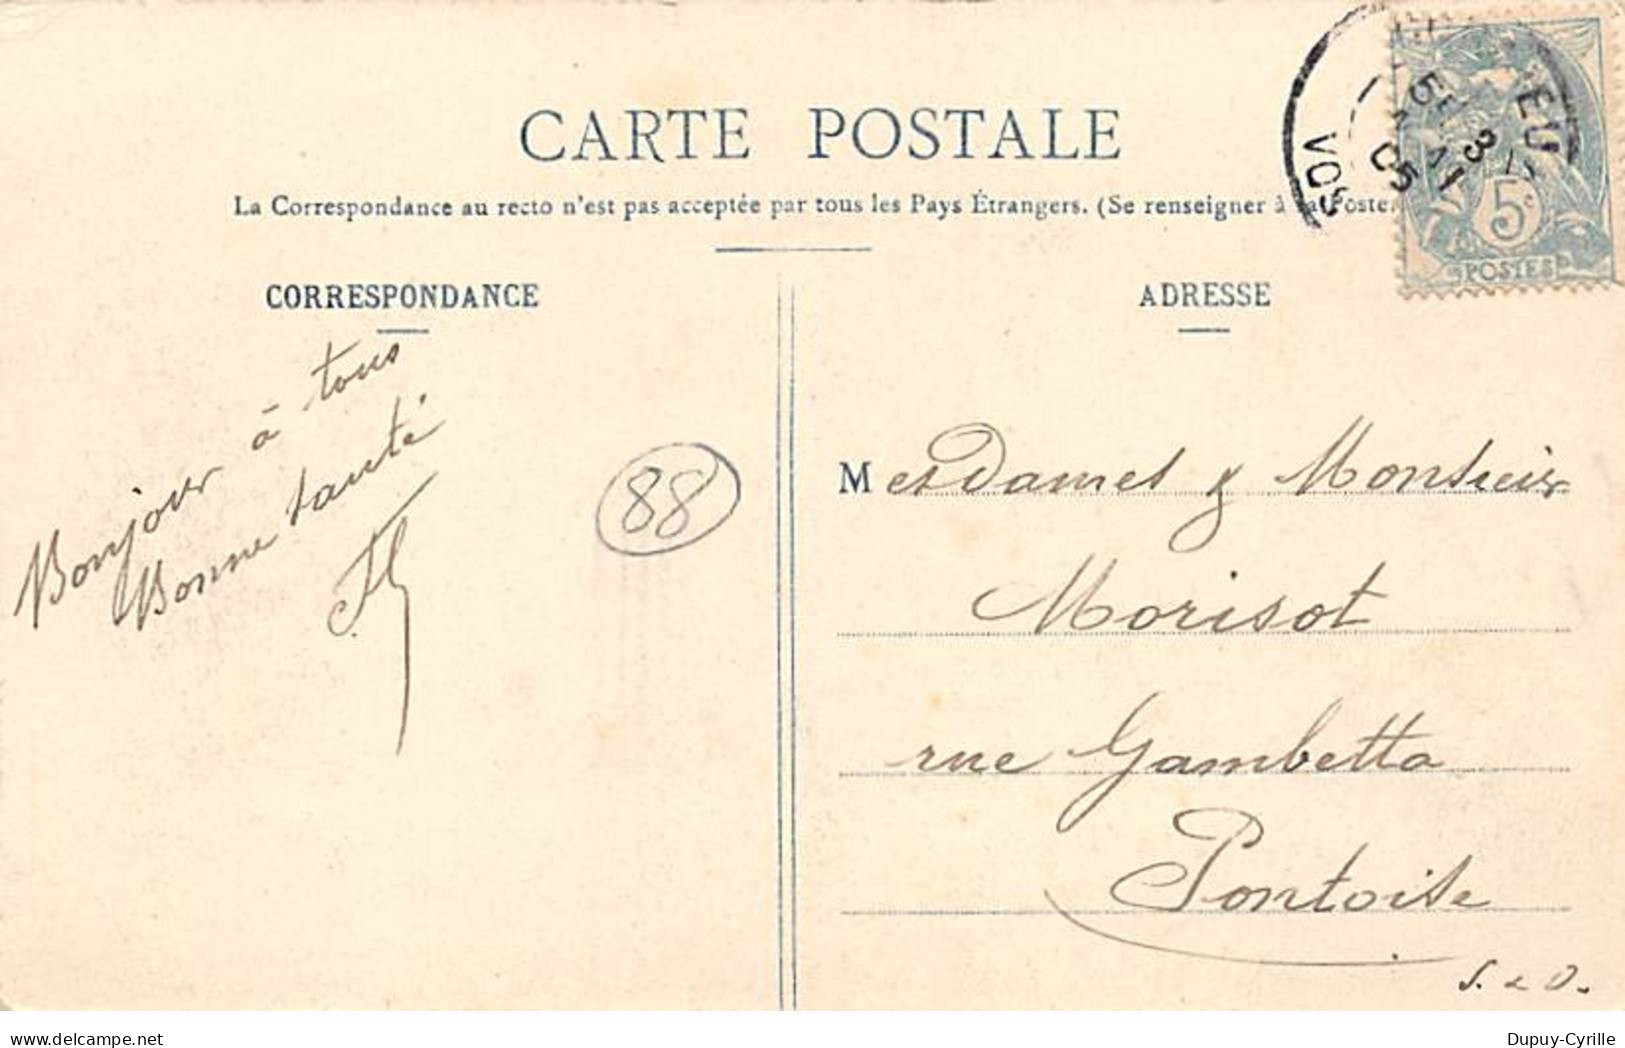 CARTE POSTALE
La Correspondance au recto n'est pas acceptée par tous les Pays Étrangers. (Se renseigner à la Poste.
CORRESPONDANCE
ADRESSE
Bonjour à tous
Bonne santé
88
Mesdames & Monsieur
Morisot
rue Gambetta
Pontoise
S. & O.
VOS
EU
05
5c
POSTES
www.delcampe.net
Dupuy-Cyrille